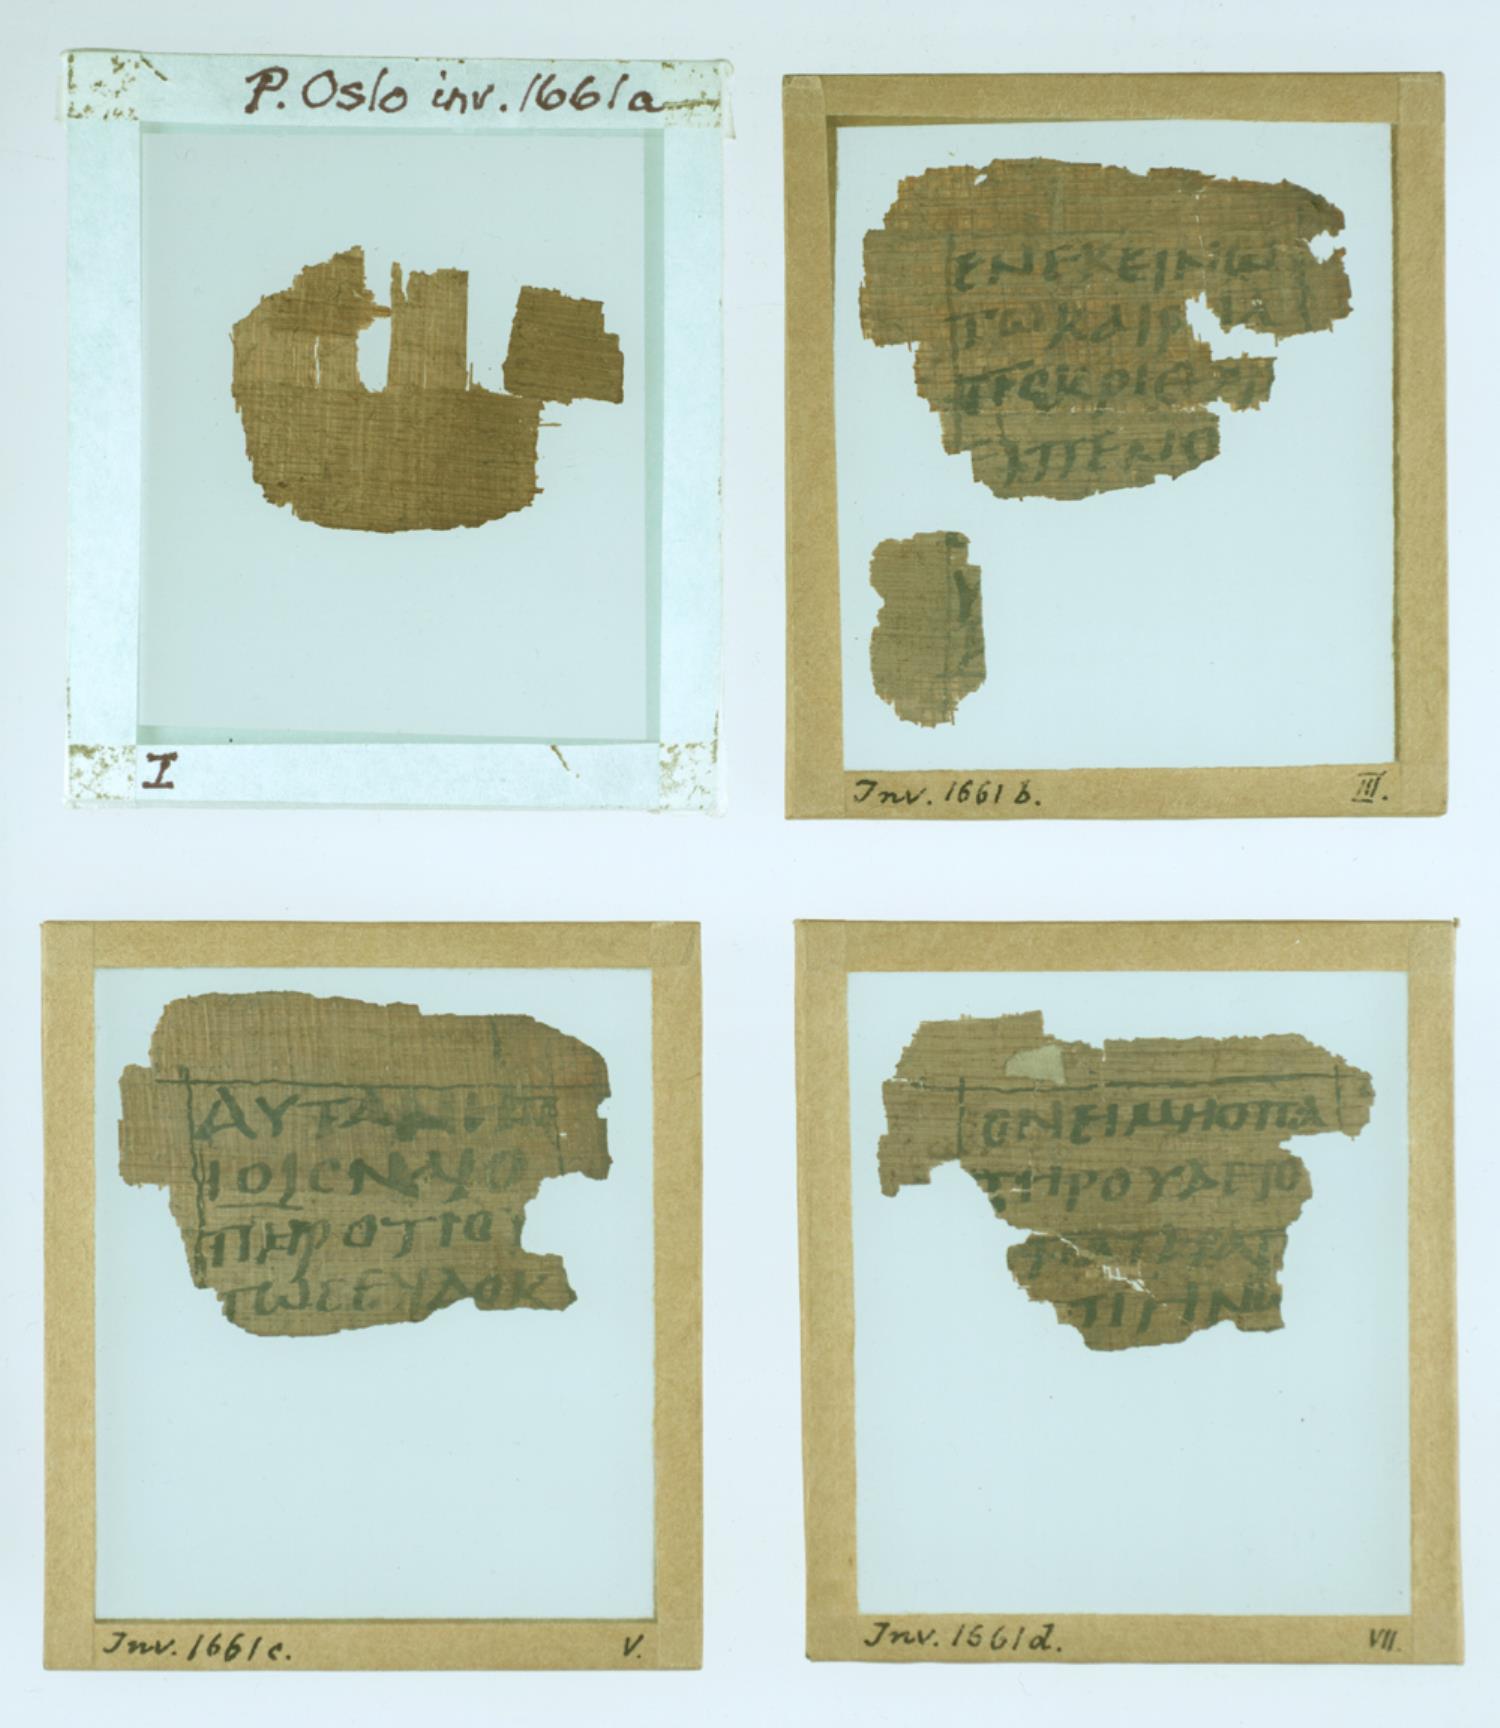 P. Oslo inv. 1661a
I
ΕΝΕΚΕΙΝΩ
ΤΩΚΑΙΡ
ΠΕΚΡΙΘΗ
ΠΕΝΟ
Inv. 1661 b.
III.
ΑΥΤΑΑΠ
ΙΟΙΣΝΑΙΟ
ΠΗΡΟΤΙΟ
ΤΩΣΕΥΔΟΚ
Inv. 1661 c.
V.
ΟΝΕΙΜΗΟΠΑ
ΤΗΡΟΥΔΕΤΟ
ΤΙΓΙΝΩ
Inv. 1661 d.
VII.